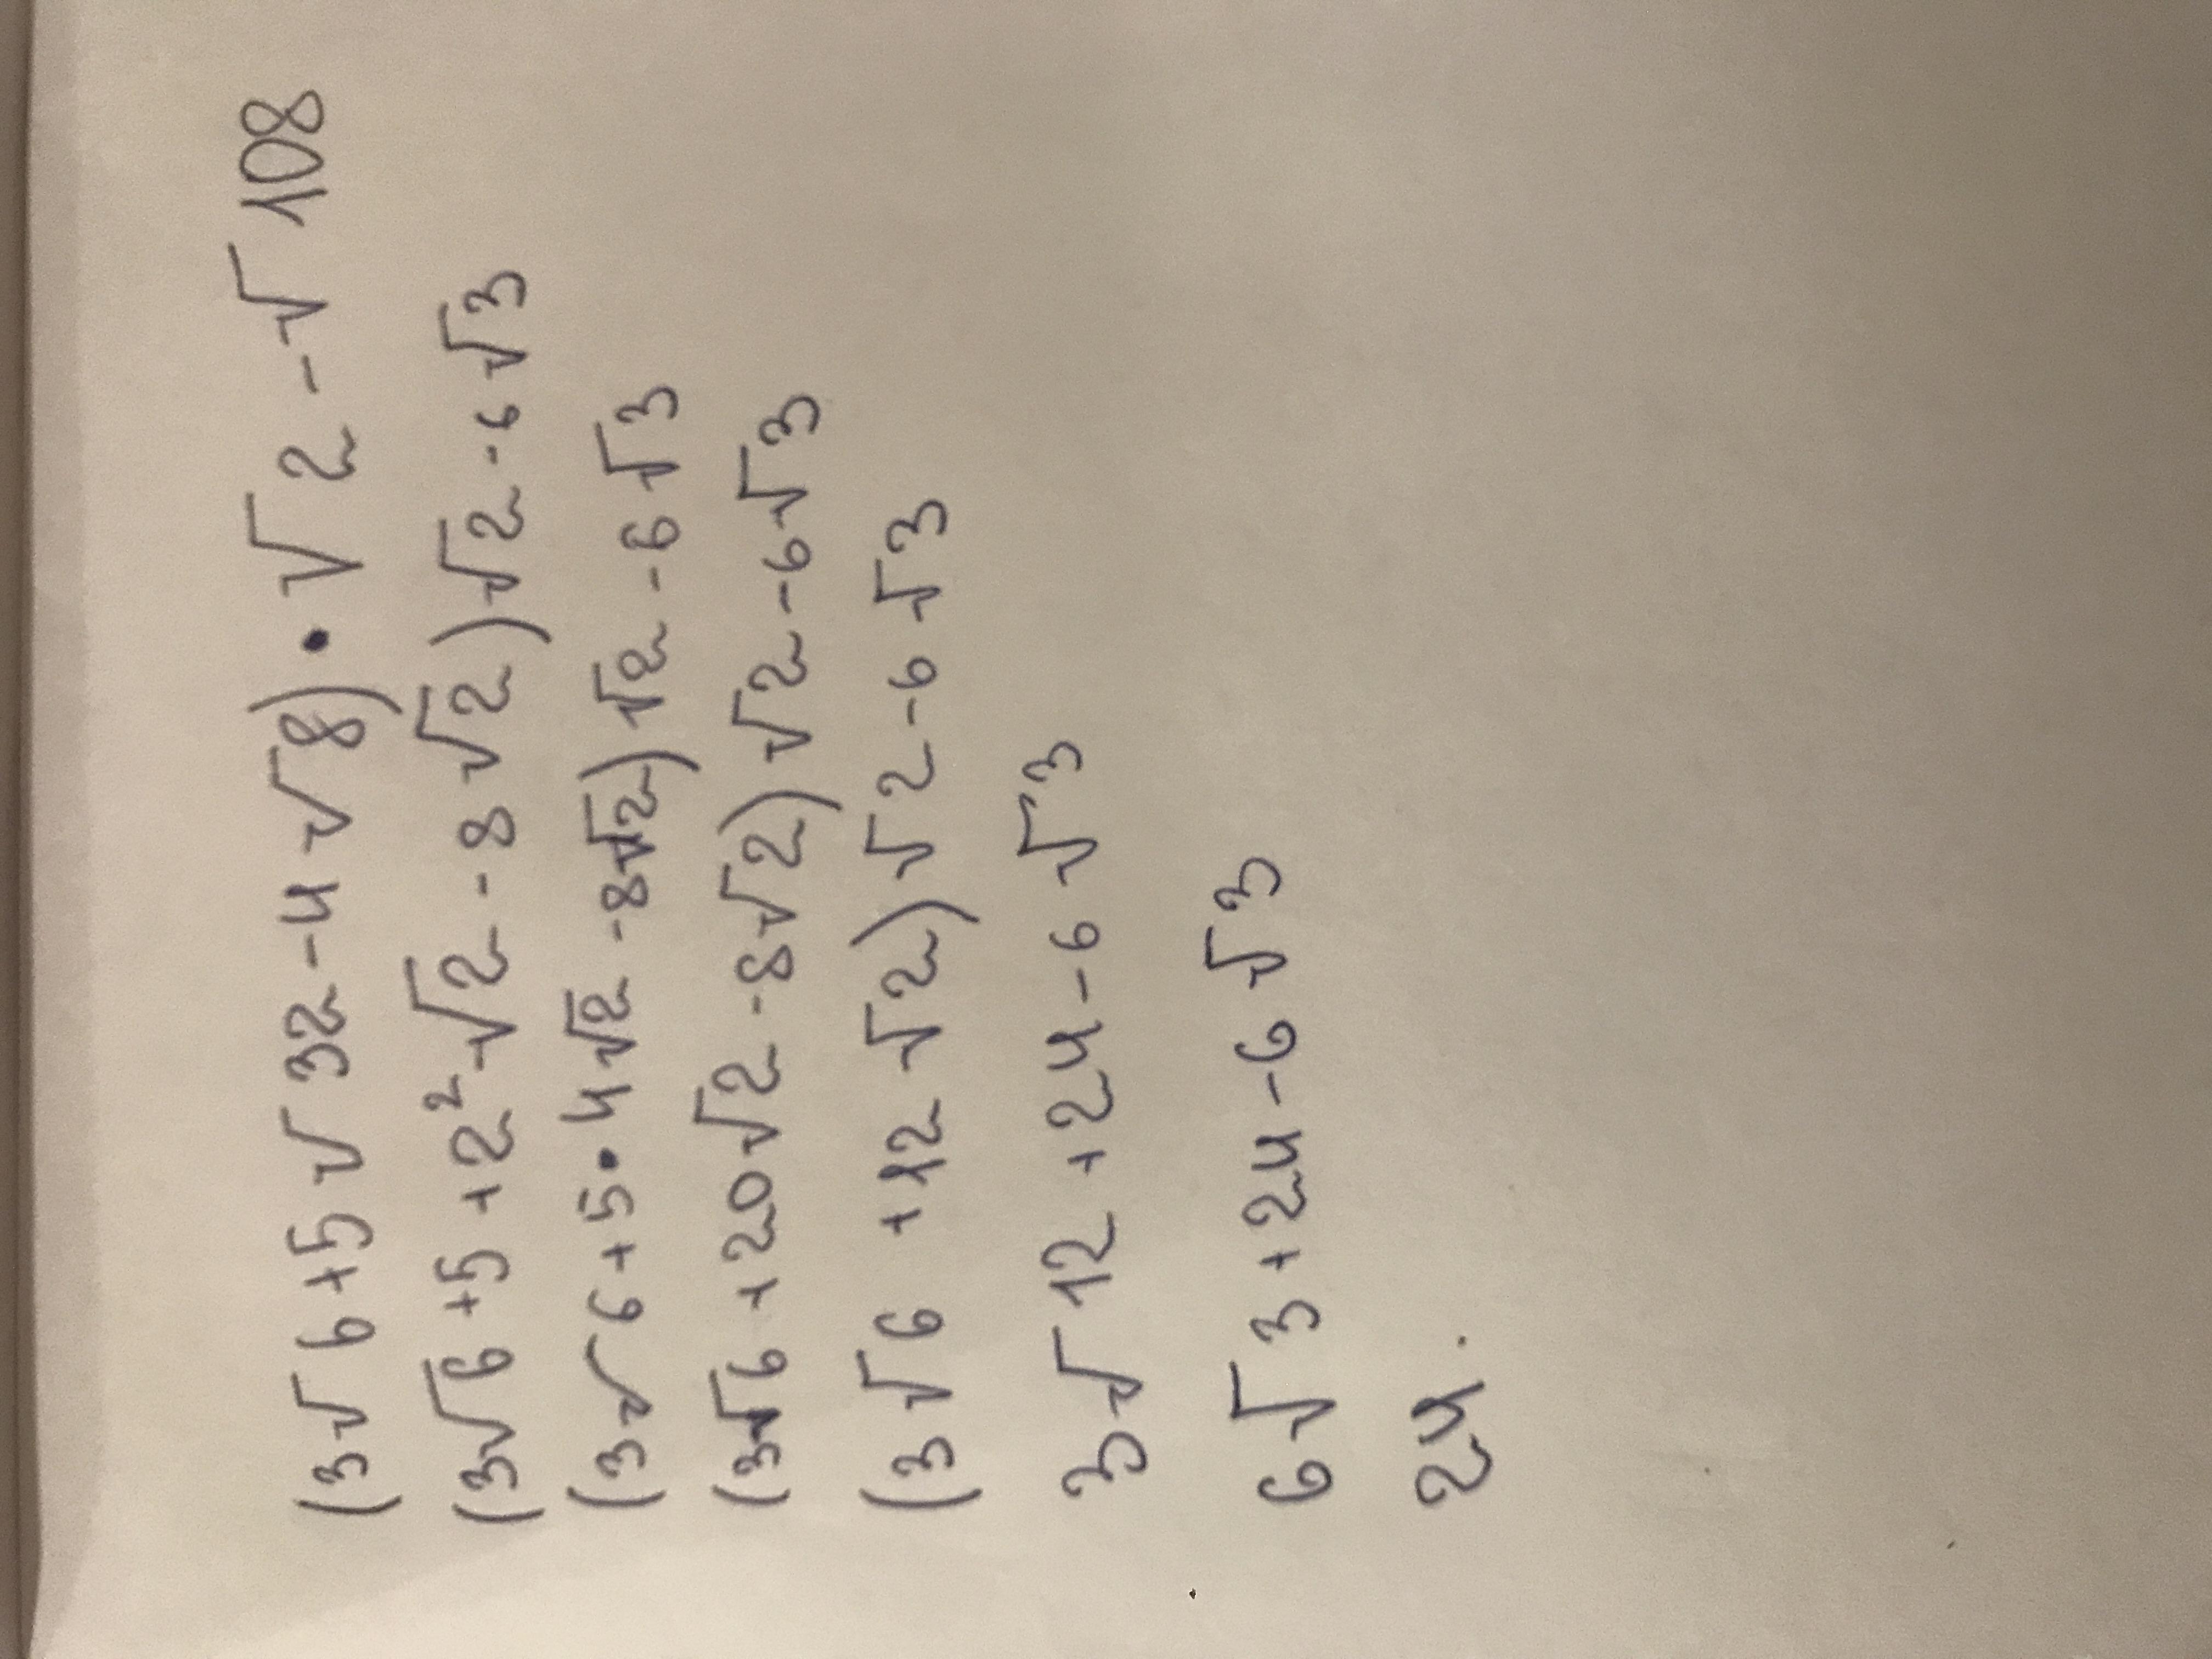 (3√6+5√32-4√8)•√2-√108
(3√6+5+2²√2-8√2)√2-6√3
(3√6+5•4√2-8√2)√2-6√3
(3√6+20√2-8√2)√2-6√3
(3√6+12√2)√2-6√3
3√12+24-6√3
6√3+24-6√3
24.